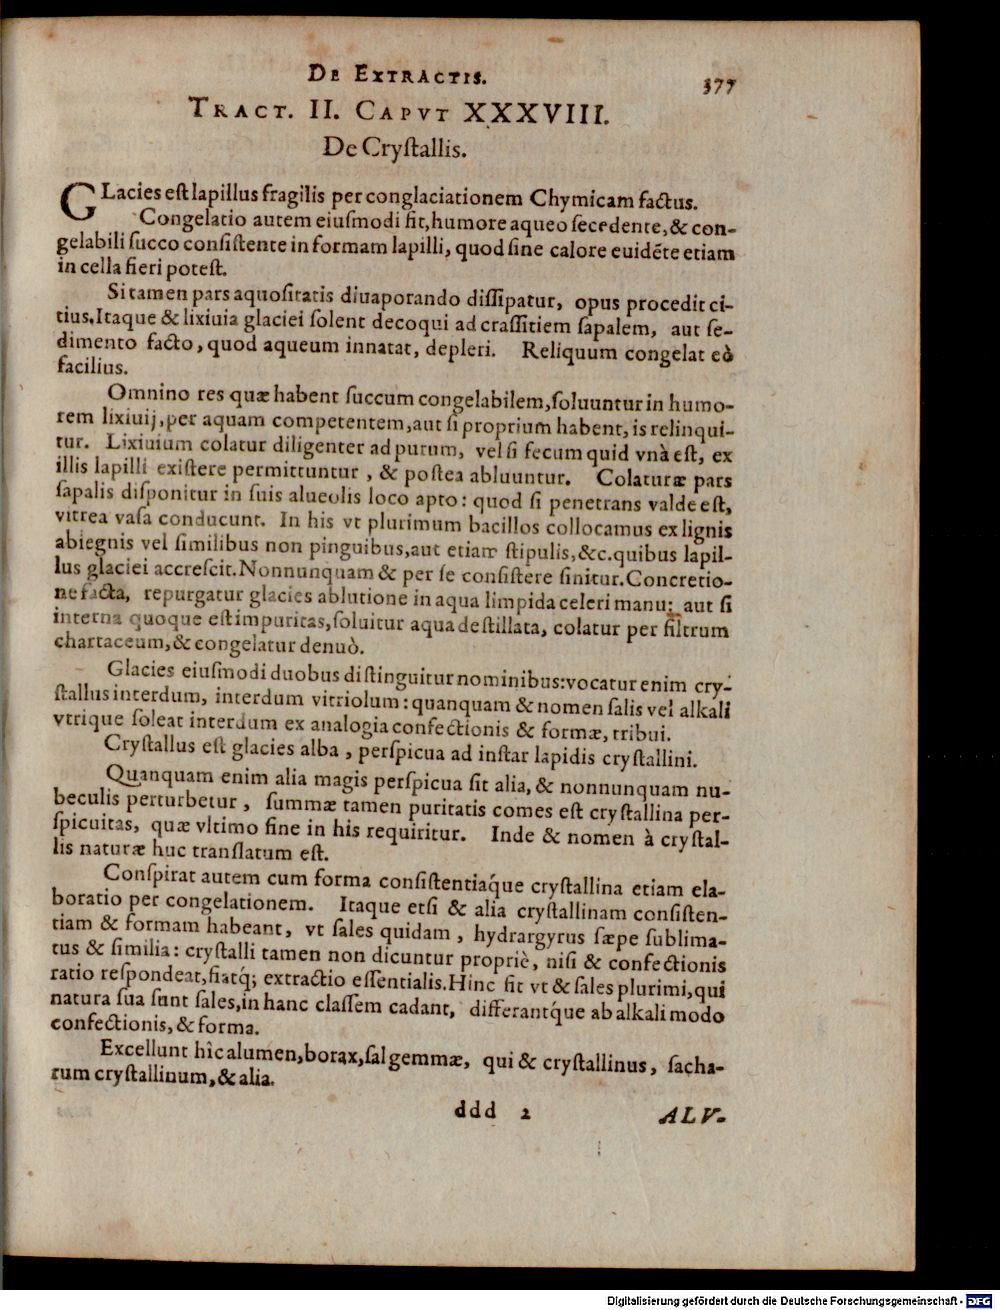 DE EXTRACTIS. 377
TRACT. II. CAPVT XXXVIII.
De Cryſtallis.
GLacies eſt lapillus fragilis per conglaciationem Chymicam factus.
Congelatio autem eiuſmodi fit, humore aqueo ſecedente, & con-
gelabili ſucco conſiſtente in formam lapilli, quod ſine calore euidẽte etiam
in cella fieri poteſt.
Si tamen pars aquoſitatis diuaporando diſſipatur, opus procedit ci-
tius. Itaque & lixiuia glaciei ſolent decoqui ad craſſitiem ſapalem, aut ſe-
dimento facto, quod aqueum innatat, depleri. Reliquum congelat eò
facilius.
Omnino res quæ habent ſuccum congelabilem, ſoluuntur in humo-
rem lixiuij, per aquam competentem, aut ſi proprium habent, is relinqui-
tur. Lixiuium colatur diligenter ad purum, vel ſi fecum quid vnà eſt, ex
illis lapilli exiſtere permittuntur, & poſtea abluuntur. Colaturæ pars
ſapalis diſponitur in ſuis alueolis loco apto: quod ſi penetrans valde eſt,
vitrea vaſa conducunt. In his vt plurimum bacillos collocamus ex lignis
abiegnis vel ſimilibus non pinguibus, aut etiam ſtipulis, &c. quibus lapil-
lus glaciei accreſcit. Nonnunquam & per ſe conſiſtere ſinitur. Concretio-
ne facta, repurgatur glacies ablutione in aqua limpida celeri manu: aut ſi
interna quoque eſt impuritas, ſoluitur aqua deſtillata, colatur per filtrum
chartaceum, & congelatur denuò.
Glacies eiuſmodi duobus diſtinguitur nominibus: vocatur enim cry-
ſtallus interdum, interdum vitriolum: quanquam & nomen ſalis vel alkali
vtrique ſoleat interdum ex analogia confectionis & formæ, tribui.
Cryſtallus eſt glacies alba, perſpicua ad inſtar lapidis cryſtallini.
Quanquam enim alia magis perſpicua ſit alia, & nonnunquam nu-
beculis perturbetur, ſummæ tamen puritatis comes eſt cryſtallina per-
ſpicuitas, quæ vltimo fine in his requiritur. Inde & nomen à cryſtal-
lis naturæ huc tranſlatum eſt.
Conſpirat autem cum forma conſiſtentiaq́ue cryſtallina etiam ela-
boratio per congelationem. Itaque etſi & alia cryſtallinam conſiſten-
tiam & formam habeant, vt ſales quidam, hydrargyrus ſæpe ſublima-
tus & ſimilia: cryſtalli tamen non dicuntur propriè, niſi & confectionis
ratio reſpondeat, fiatq́; extractio eſſentialis. Hinc fit vt & ſales plurimi, qui
natura ſua ſunt ſales, in hanc claſſem cadant, differantq́ue ab alkali modo
confectionis, & forma.
Excellunt hîc alumen, borax, ſal gemmæ, qui & cryſtallinus, ſacha-
rum cryſtallinum, & alia.
ddd 2 ALV-
Digitalisierung gefördert durch die Deutsche Forschungsgemeinschaft - DFG